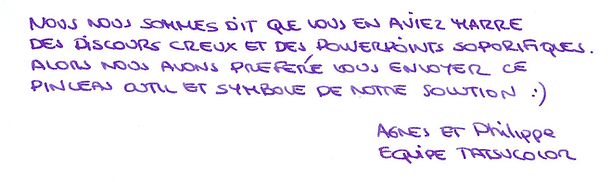 NOUS NOUS SOMMES DIT QUE VOUS EN AVIEZ MARRE
DES DISCOURS CREUX ET DES POWERPOINTS SOPORIFIQUES.
ALORS NOUS AVONS PREFERÉ VOUS ENVOYER CE
PINCEAU OUTIL ET SYMBOLE DE NOTRE SOLUTION :)
AGNES ET Philippe
EQUIPE TATSUCOLOR